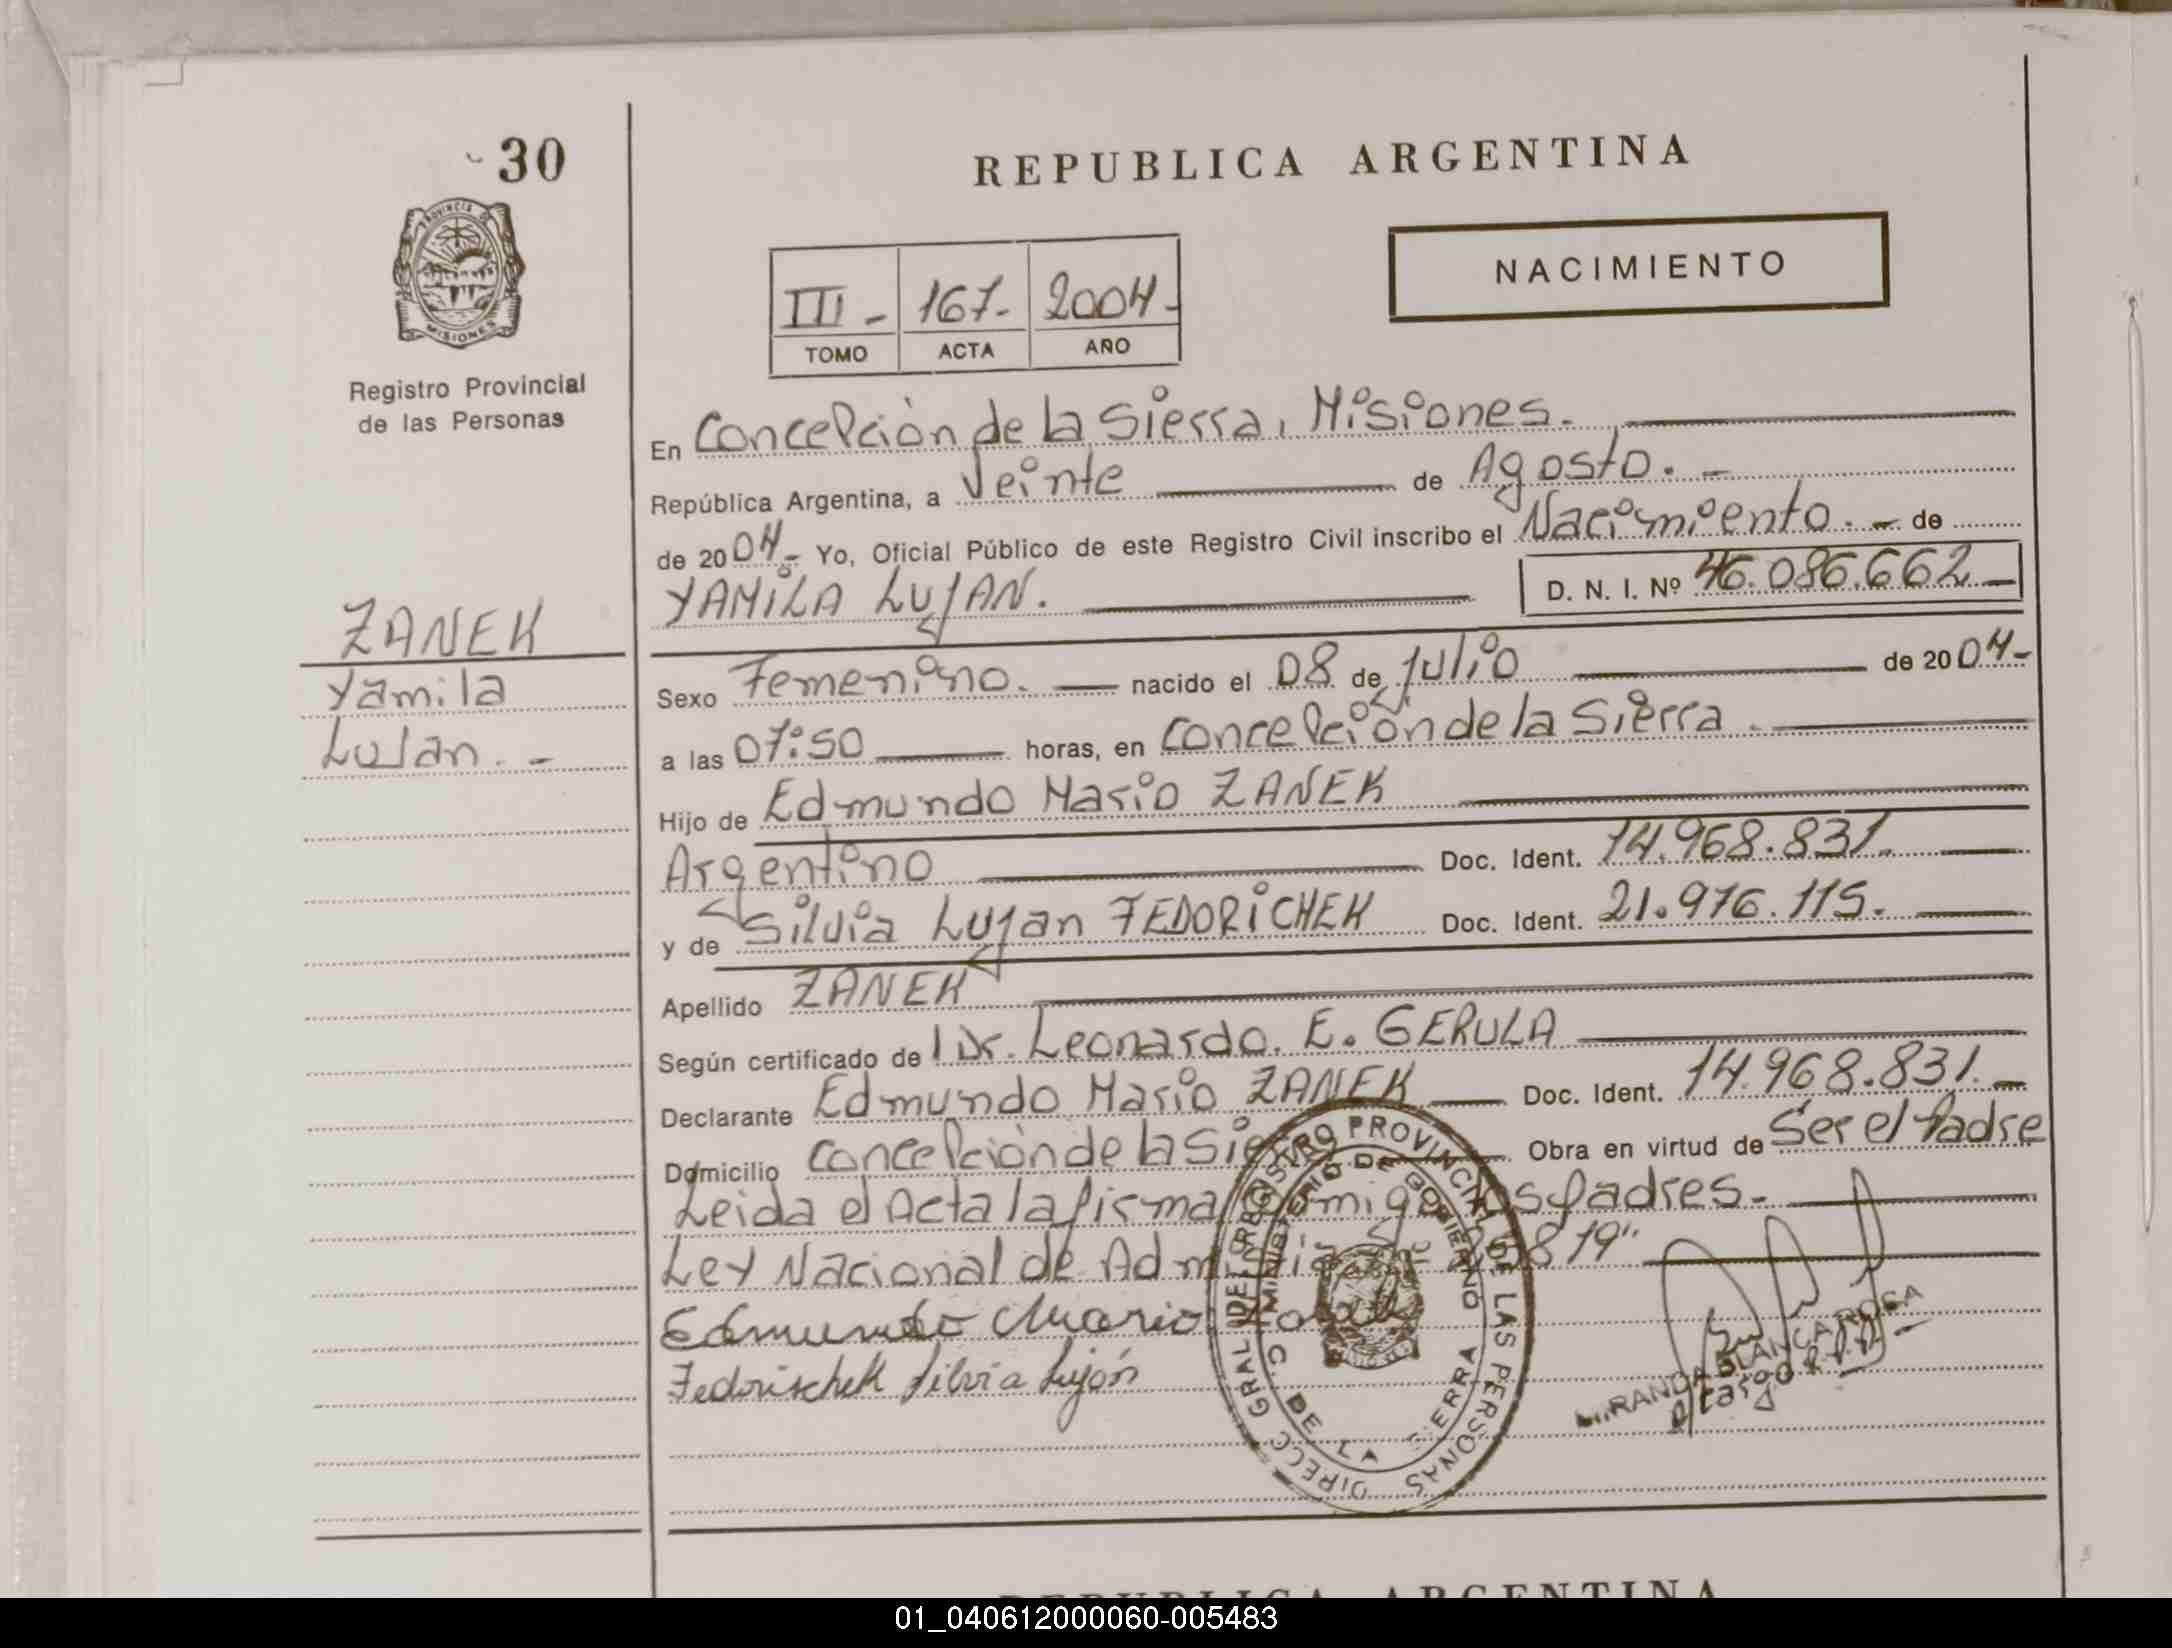 30
PROVINCIA DE
MISIONES
Registro Provincial
de las Personas
REPUBLICA ARGENTINA
NACIMIENTO
III - 167.- 2004-
TOMO ACTA AÑO
En Concepción de la Sierra, Misiones.
República Argentina, a Veinte de Agosto. -
de 2004.- Yo, Oficial Público de este Registro Civil inscribo el Nacimiento. - de
YAMILA LUJAN. D. N. I. Nº 46.086.662
ZANEK
Yamila
Lujan. -
Sexo Femenino. nacido el 08 de julio de 2004-
a las 07:50 horas, en Concepción de la Sierra.
Hijo de Edmundo Mario ZANEK
Argentino Doc. Ident. 14.968.831.
y de Silvia Lujan FEDORICHEK Doc. Ident. 21.976.115.
Apellido ZANEK
Según certificado de Dr. Leonardo. E. GERULA
Declarante Edmundo Mario ZANEK Doc. Ident. 14.968.831.-
Domicilio Concepción de la Sierra Obra en virtud de Ser el Padre
Leida el Acta la firma conmigo los Padres.-
Ley Nacional de 819"
Edmundo Mario
Fedorischek Silvia Luján
DIRECC GRAL DEL REGISTRO PROVINCIAL DE LAS PERSONAS
MINISTERIO DE GOBIERNO
C. DE LA SIERRA
MIRANDA BLANCA ROSA
a/cargo
REPUBLICA ARGENTINA
01_040612000060-005483